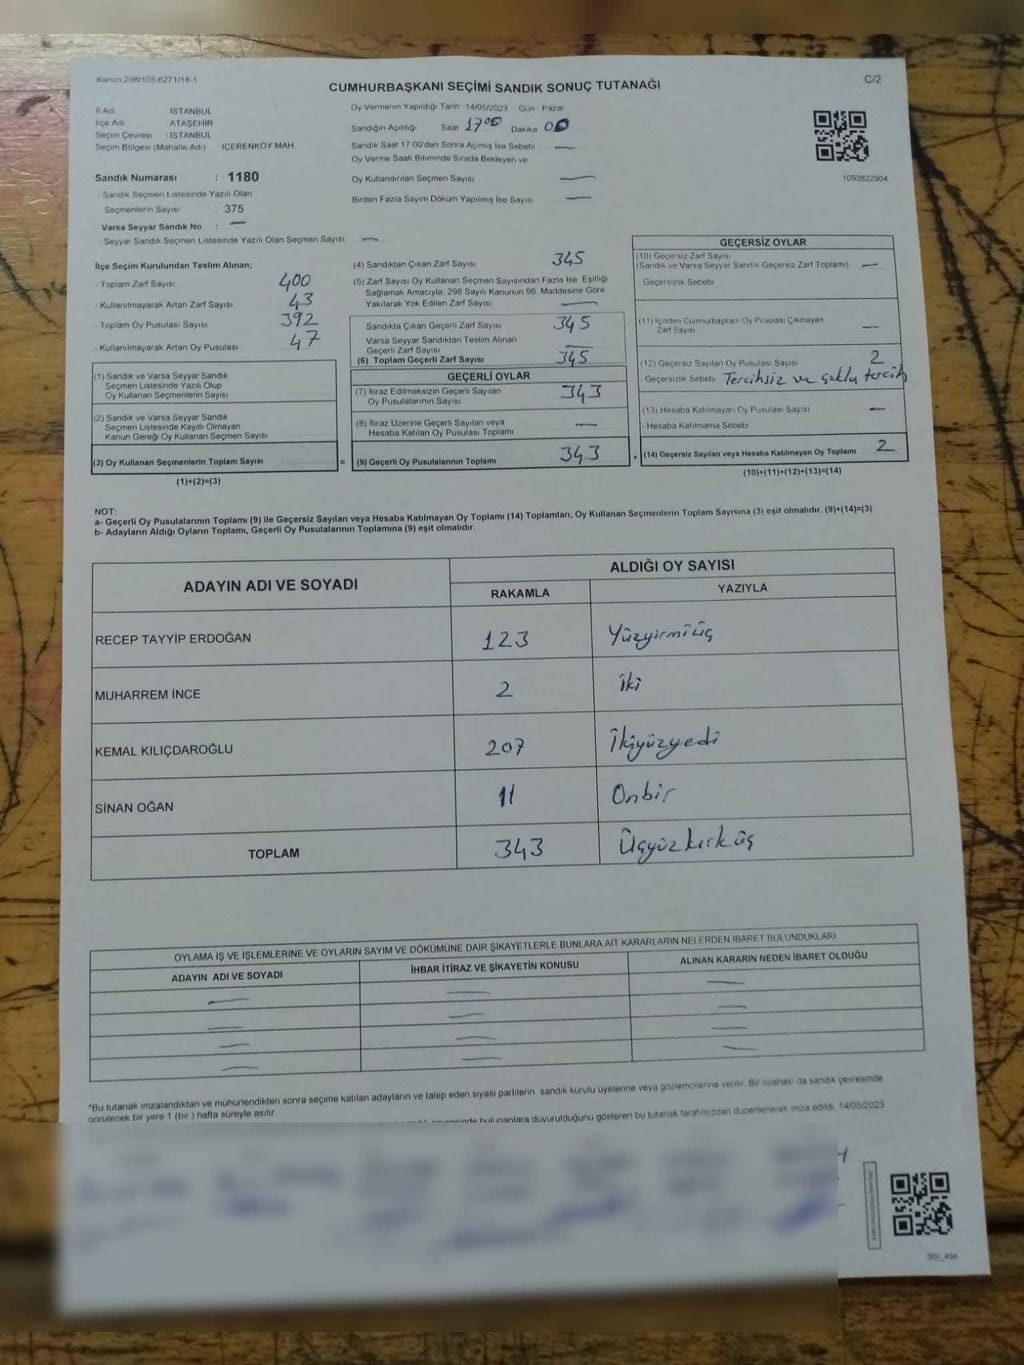 Kanun:298/105 6271/18-1
C/2
CUMHURBAŞKANI SEÇİMİ SANDIK SONUÇ TUTANAĞI
İl Adı İSTANBUL
İlçe Adı ATAŞEHİR
Seçim Çevresi : İSTANBUL
Seçim Bölgesi (Mahalle Adı) İÇERENKÖY MAH
Sandık Numarası : 1180
Sandık Seçmen Listesinde Yazılı Olan
Seçmenlerin Sayısı : 375
Varsa Seyyar Sandık No : —
Seyyar Sandık Seçmen Listesinde Yazılı Olan Seçmen Sayısı —
Oy Vermenin Yapıldığı Tarih 14/05/2023 Gün Pazar
Sandığın Açıldığı Saat 17 00 Dakika 00
Sandık Saat 17:00'den Sonra Açılmış İse Sebebi —
Oy Verme Saati Bitiminde Sırada Bekleyen ve
Oy Kullandırılan Seçmen Sayısı —
Birden Fazla Sayım Döküm Yapılmış İse Sayısı —
1093822904
İlçe Seçim Kurulundan Teslim Alınan;
Toplam Zarf Sayısı 400
Kullanılmayarak Artan Zarf Sayısı 43
Toplam Oy Pusulası Sayısı 392
Kullanılmayarak Artan Oy Pusulası 47
(1) Sandık ve Varsa Seyyar Sandık
Seçmen Listesinde Yazılı Olup
Oy Kullanan Seçmenlerin Sayısı
(2) Sandık ve Varsa Seyyar Sandık
Seçmen Listesinde Kayıtlı Olmayan
Kanun Gereği Oy Kullanan Seçmen Sayısı
(3) Oy Kullanan Seçmenlerin Toplam Sayısı =
(1)+(2)=(3)
(4) Sandıktan Çıkan Zarf Sayısı 345
(5) Zarf Sayısı Oy Kullanan Seçmen Sayısından Fazla İse, Eşitliği
Sağlamak Amacıyla, 298 Sayılı Kanunun 98. Maddesine Göre
Yakılarak Yok Edilen Zarf Sayısı —
Sandıkta Çıkan Geçerli Zarf Sayısı 345
Varsa Seyyar Sandıktan Teslim Alınan
Geçerli Zarf Sayısı —
(6) Toplam Geçerli Zarf Sayısı 345
GEÇERLİ OYLAR
(7) İtiraz Edilmeksizin Geçerli Sayılan
Oy Pusulalarının Sayısı 343
(8) İtiraz Üzerine Geçerli Sayılan veya
Hesaba Katılan Oy Pusulası Toplamı —
(9) Geçerli Oy Pusulalarının Toplamı 343 +
GEÇERSİZ OYLAR
(10) Geçersiz Zarf Sayısı
(Sandık ve Varsa Seyyar Sandık Geçersiz Zarf Toplamı) —
- Geçersizlik Sebebi
(11) İçinden Cumhurbaşkanı Oy Pusulası Çıkmayan
Zarf Sayısı —
(12) Geçersiz Sayılan Oy Pusulası Sayısı 2
- Geçersizlik Sebebi Tercihsiz ve çoklu tercih
(13) Hesaba Katılmayan Oy Pusulası Sayısı —
- Hesaba Katılmama Sebebi
(14) Geçersiz Sayılan veya Hesaba Katılmayan Oy Toplamı 2
(10)+(11)+(12)+(13)=(14)
NOT:
a- Geçerli Oy Pusulalarının Toplamı (9) ile Geçersiz Sayılan veya Hesaba Katılmayan Oy Toplamı (14) Toplamları, Oy Kullanan Seçmenlerin Toplam Sayısına (3) eşit olmalıdır. (9)+(14)=(3)
b- Adayların Aldığı Oyların Toplamı, Geçerli Oy Pusulalarının Toplamına (9) eşit olmalıdır.
ADAYIN ADI VE SOYADI
ALDIĞI OY SAYISI
RAKAMLA YAZIYLA
RECEP TAYYİP ERDOĞAN 123 Yüzyirmiüç
MUHARREM İNCE 2 İki
KEMAL KILIÇDAROĞLU 207 İkiyüzyedi
SİNAN OĞAN 11 Onbir
TOPLAM 343 Üçyüzkırküç
OYLAMA İŞ VE İŞLEMLERİNE VE OYLARIN SAYIM VE DÖKÜMÜNE DAİR ŞİKAYETLERLE BUNLARA AİT KARARLARIN NELERDEN İBARET BULUNDUKLARI
ADAYIN ADI VE SOYADI İHBAR İTİRAZ VE ŞİKAYETİN KONUSU ALINAN KARARIN NEDEN İBARET OLDUĞU
— — —
— — —
— — —
— — —
*Bu tutanak imzalandıktan ve mühürlendikten sonra seçime katılan adayların ve talep eden siyasi partilerin sandık kurulu üyelerine veya gözlemcilerine verilir. Bir nüshası da sandık çevresinde
görülecek bir yere 1 (bir ) hafta süreyle asılır.
bulunanlara duyurulduğunu gösteren bu tutanak tarafımızdan düzenlenerek imza edildi. 14/05/2023